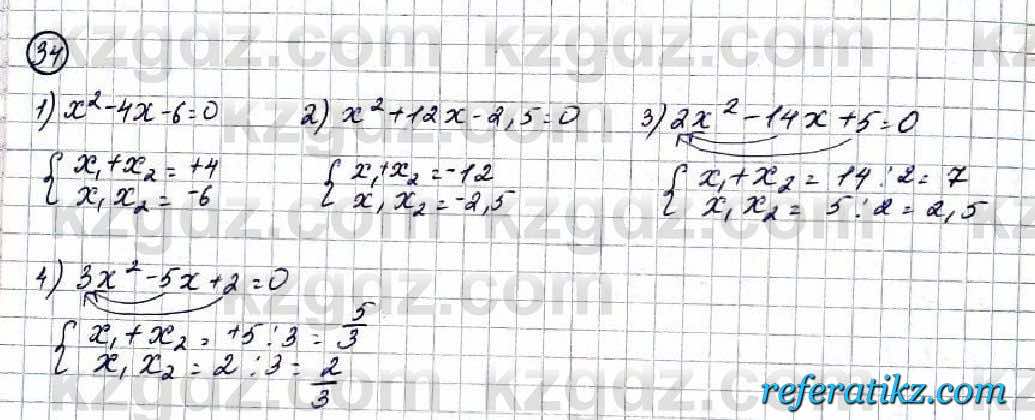 34
1) x² - 4x - 6 = 0
{ x₁ + x₂ = +4
x₁ x₂ = -6
2) x² + 12x - 2,5 = 0
{ x₁ + x₂ = -12
x₁ x₂ = -2,5
3) 2x² - 14x + 5 = 0
{ x₁ + x₂ = 14 : 2 = 7
x₁ x₂ = 5 : 2 = 2,5
4) 3x² - 5x + 2 = 0
{ x₁ + x₂ = +5 : 3 = 5/3
x₁ x₂ = 2 : 3 = 2/3
kzgdz.com
referatikz.com